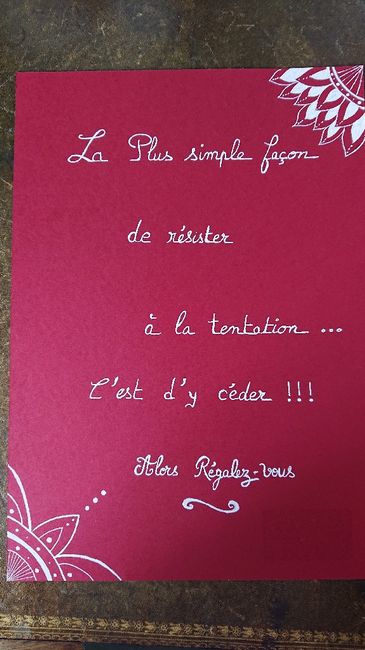 La Plus simple façon
de résister
à la tentation ...
C'est d'y céder !!!
Alors Régalez-vous